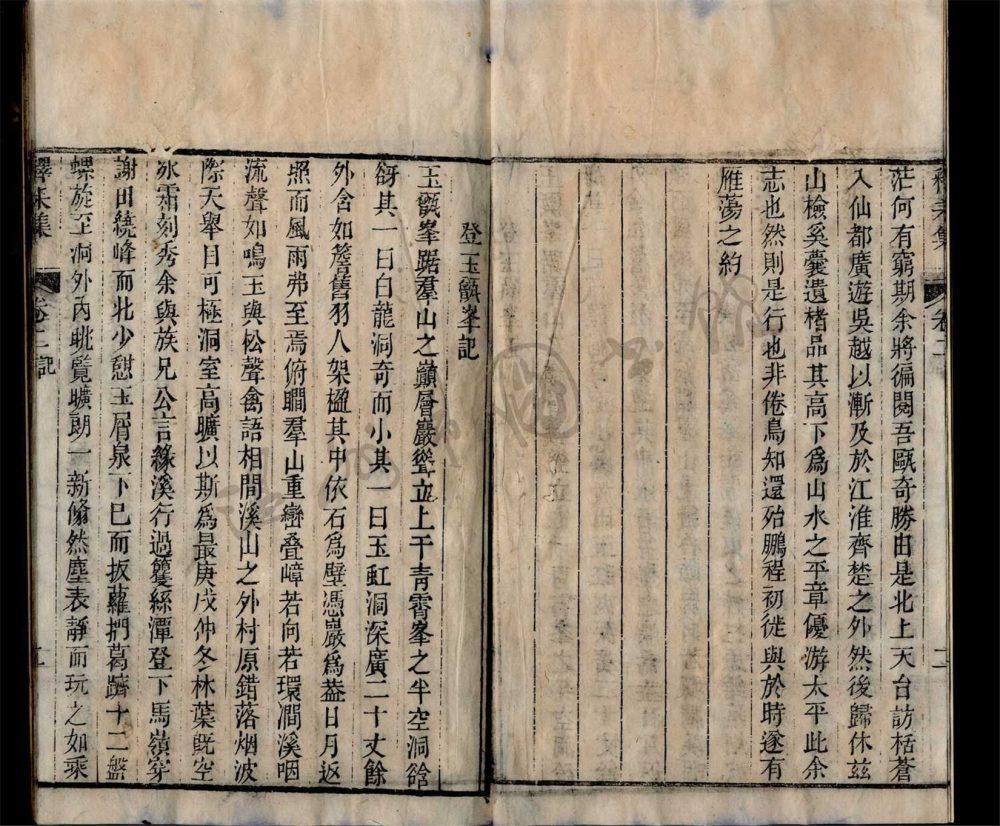 茫何有窮期余將徧閱吾甌奇勝由是北上天台訪栝蒼
入仙都廣遊吳越以漸及於江淮齊楚之外然後歸休兹
山檢奚囊遺楮品其高下爲山水之平章優游太平此余
志也然則是行也非倦鳥知還殆鵬程初徙與於時遂有
雁蕩之約
登玉甑峯記
玉甑峯踞羣山之巔層巖聳立上干青霄峯之半空洞谽
谺其一曰白龍洞奇而小其一曰玉虹洞深廣二十丈餘
外含如簷舊羽人架楹其中依石爲壁憑巖爲葢日月返
照而風雨弗至焉俯瞷羣山重巒叠嶂若向若環澗溪咽
流聲如鳴玉與松聲禽語相間溪山之外村原錯落烟波
際天舉目可極洞室高曠以斯爲最庚戌仲冬林葉旣空
氷霜刻秀余與族兄公言緣溪行過籰絲潭登下馬嶺穿
謝田繞峰而北少憩玉屑泉下已而扳蘿捫葛躋十二盤
螺旋至洞外內眺覽曠朗一新翛然塵表靜而玩之如乘
卷二 記
卷二